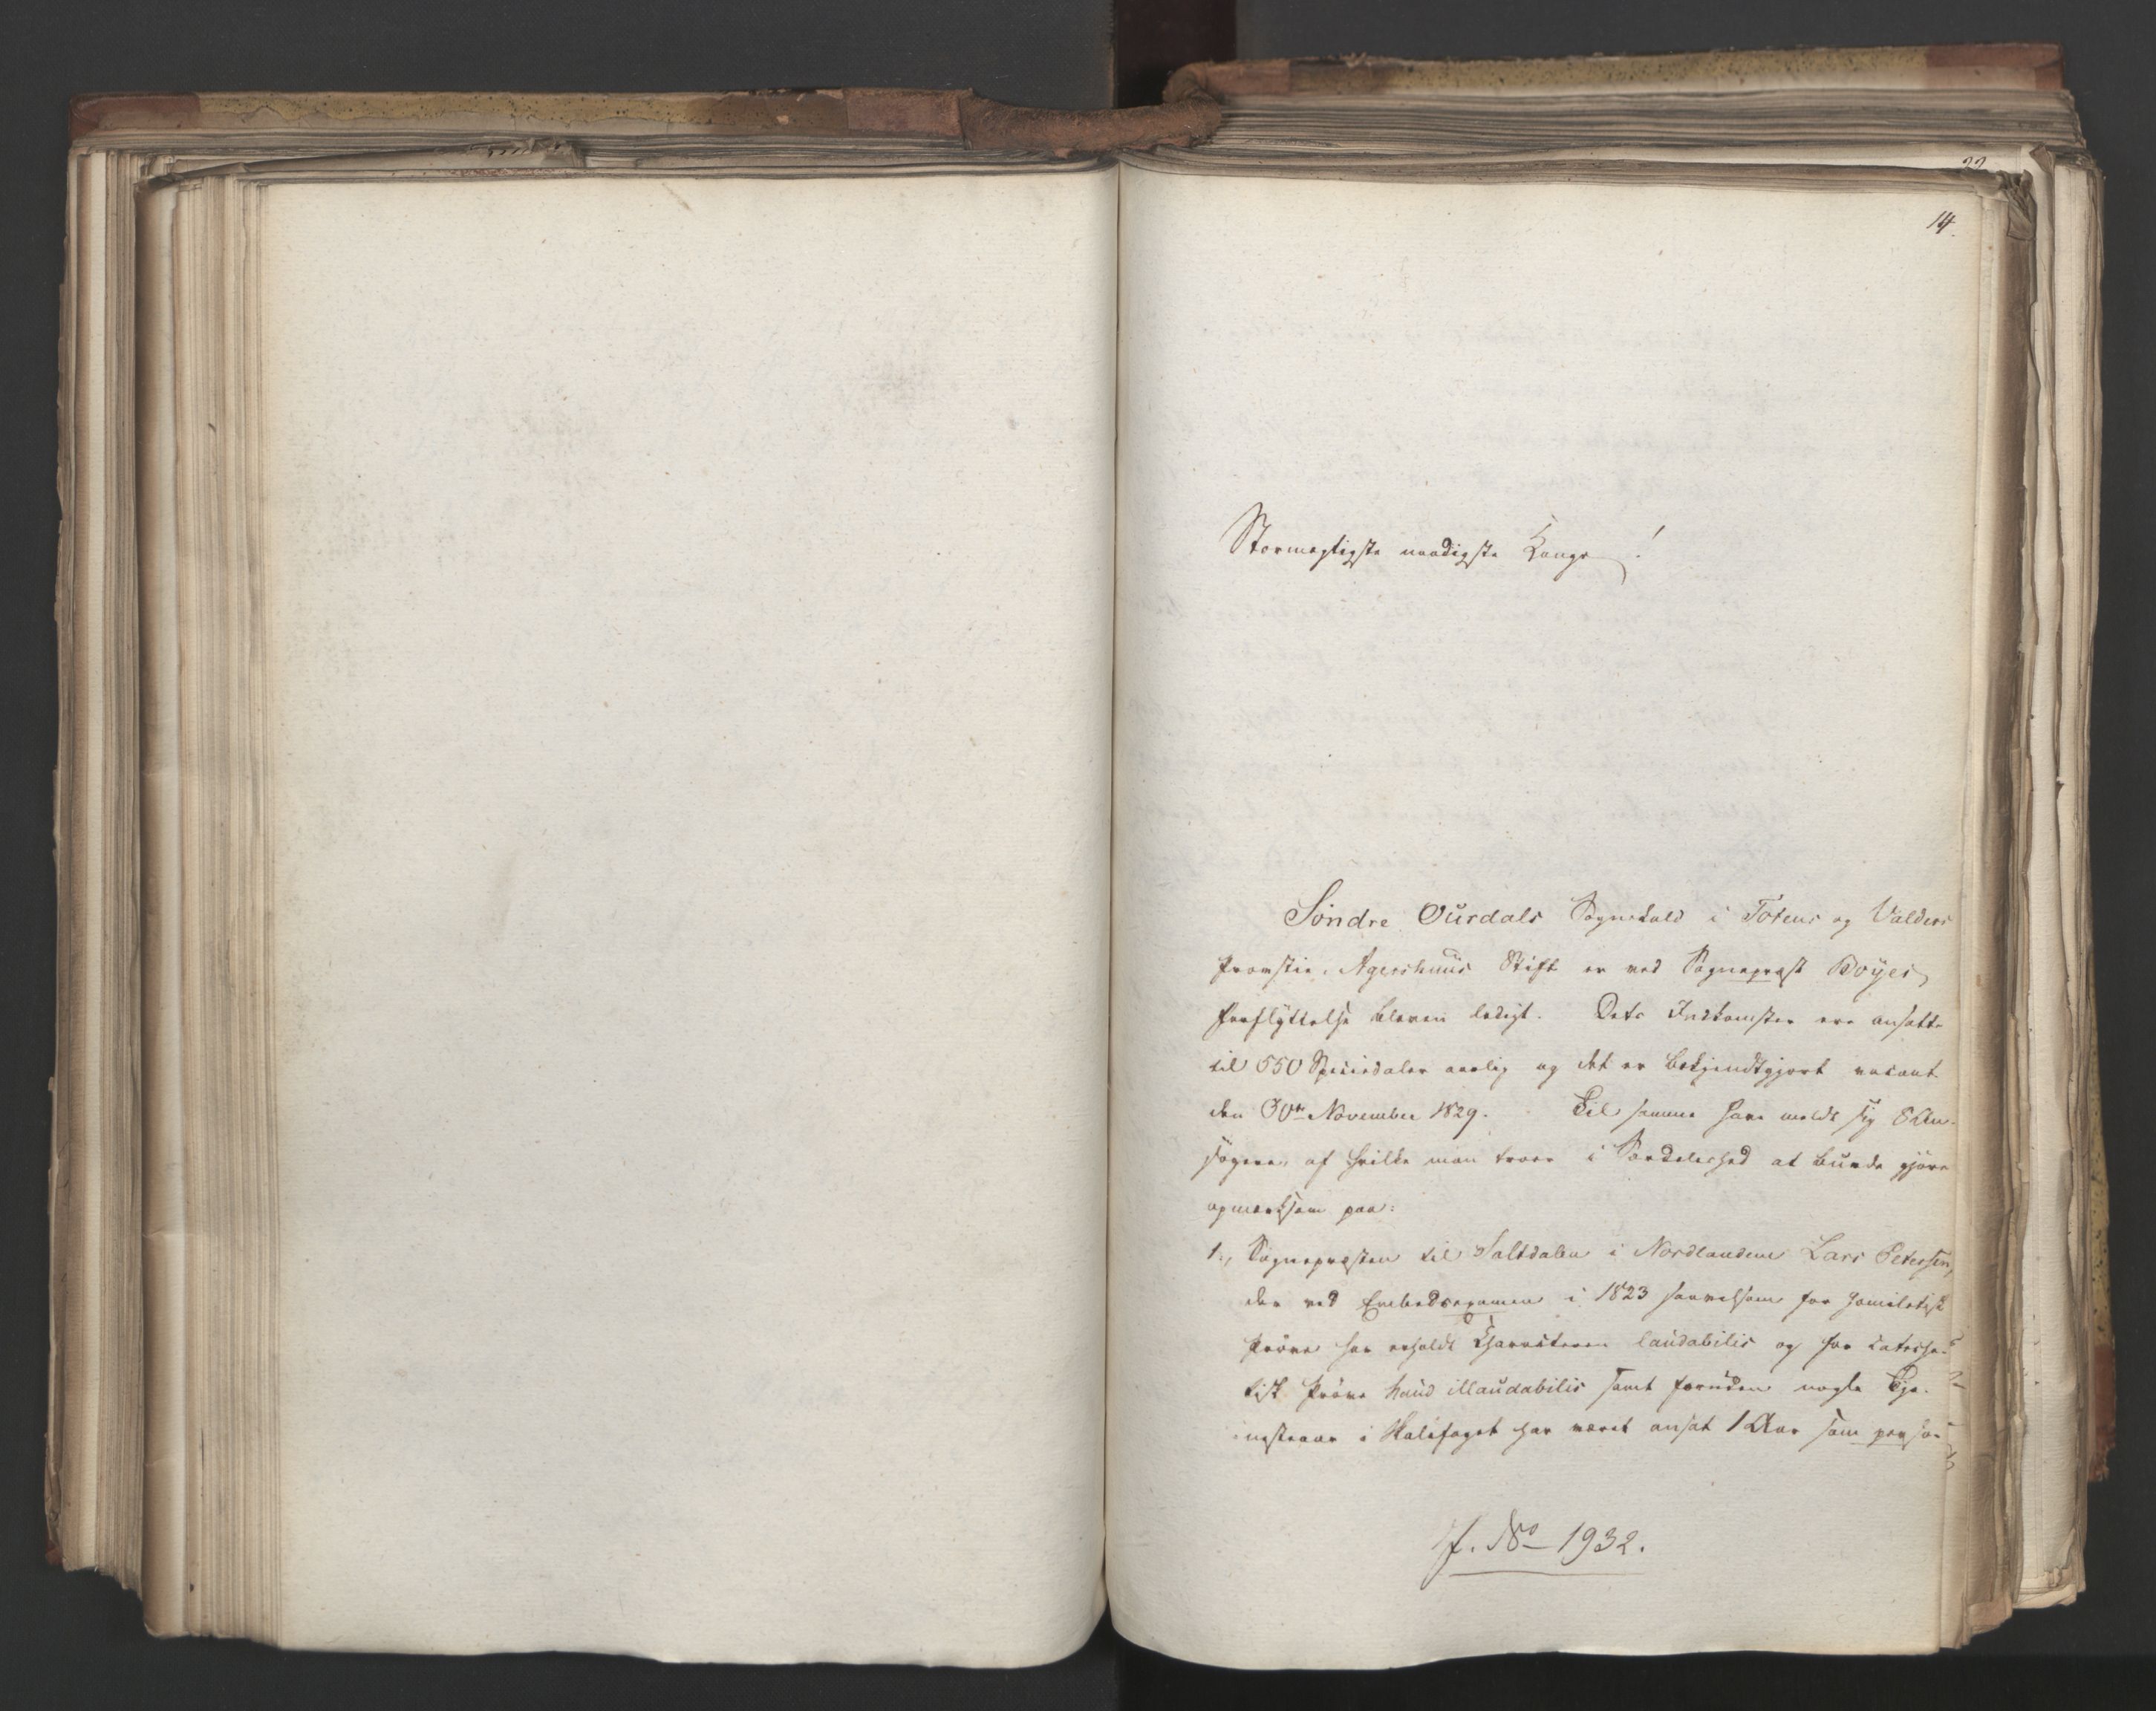 22
14.
Stormægtigste naadigste Konge!
Søndre Ourdals Sognekald i Totens og Valders
Provstie, Agershuus Stift er ved Sognepræst Boyes
Forflyttelse bleven ledigt. Dets Indkomster ere ansatte
til 550 Speciedaler aarlig og det er bekjendtgjort vacant
den 30te November 1829. Til samme have meldt sig 8 An-
søgere, af hvilke man troer i Særdeleshed at burde gjøre
opmærksom paa:
1., Sognepræsten til Saltdalen i Nordlandene Lars Petersen,
der ved Embedsexamen i 1823 saavelsom for homiletisk
Prøve har erholdt Characteren laudabilis og for cateche-
tisk Prøve haud illaudabilis samt foruden nogle Tje-
nesteaar i Kaldsfaget har været ansat 1 Aar som perso-
J. No 1932.